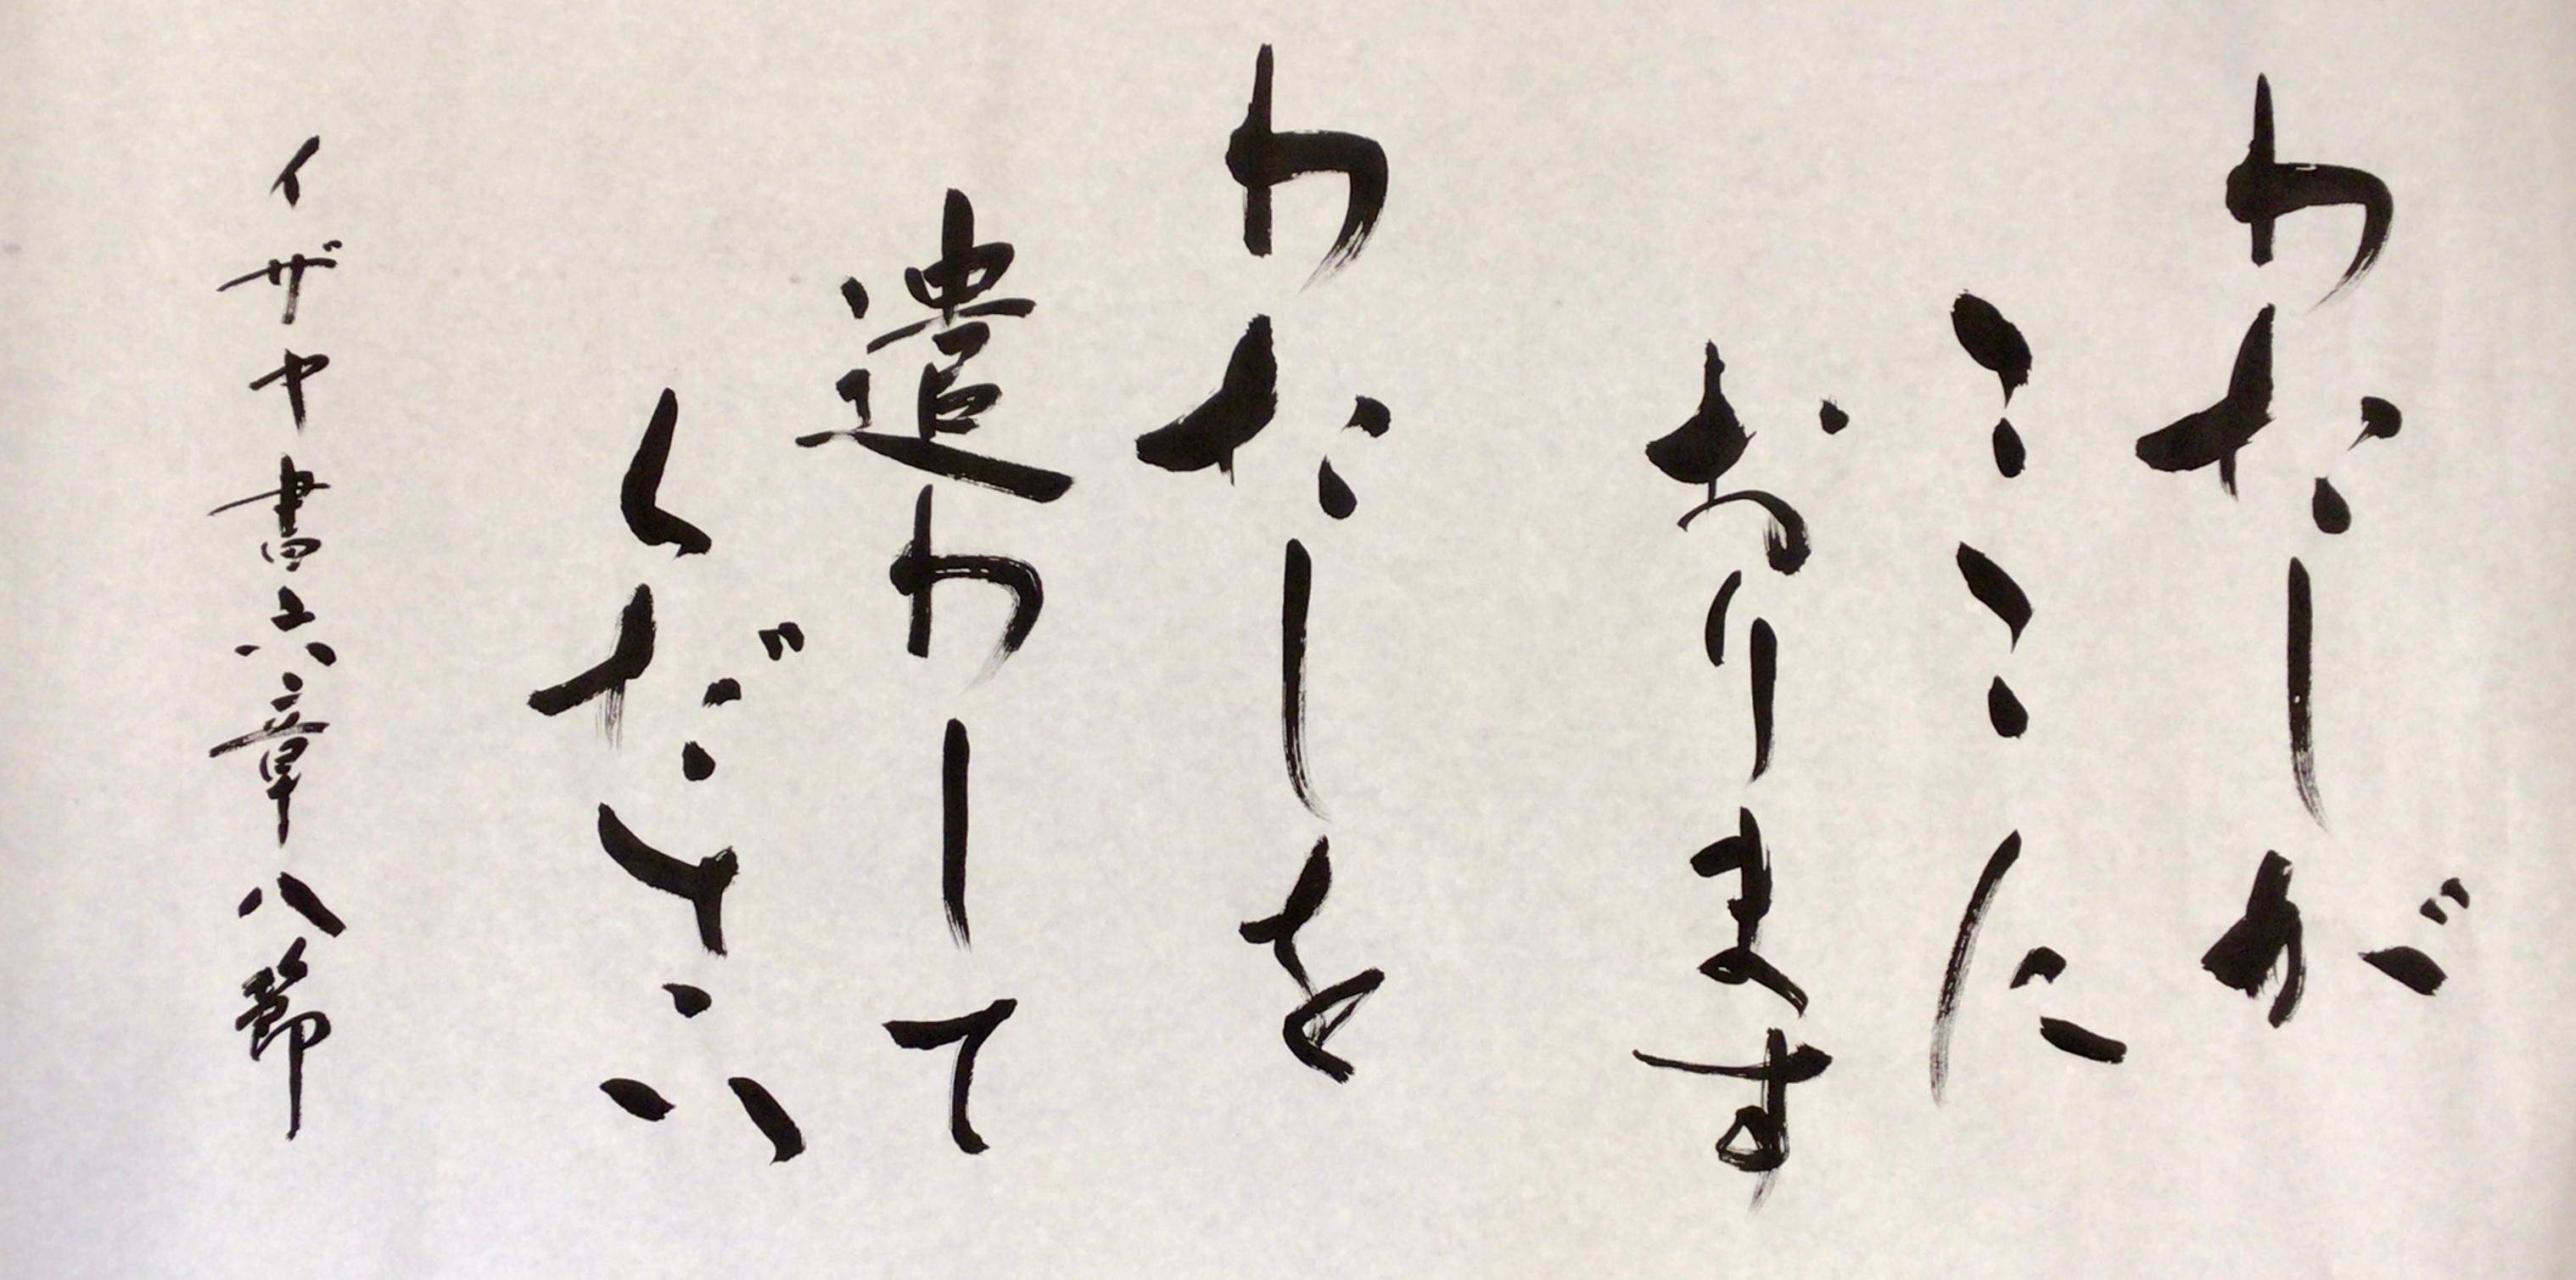 わたしが
ここに
おります
わたしを
遣わして
ください
イザヤ書六章八節